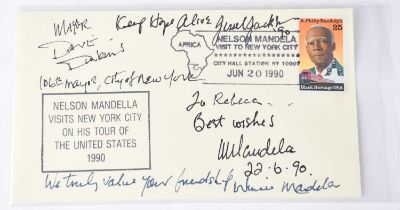 Mayor
Dave
Dinkins
106th mayor, City of New York
Keep Hope Alive
90
AFRICA
NELSON MANDELA
VISIT TO NEW YORK CITY
CITY HALL STATION, NY 10007
JUN 20 1990
A. Philip Randolph
25
Black Heritage USA
NELSON MANDELLA
VISITS NEW YORK CITY
ON HIS TOUR OF
THE UNITED STATES
1990
To Rebecca
Best wishes
NMandela
22.6.90.
We truly value your friendship
Winnie Mandela